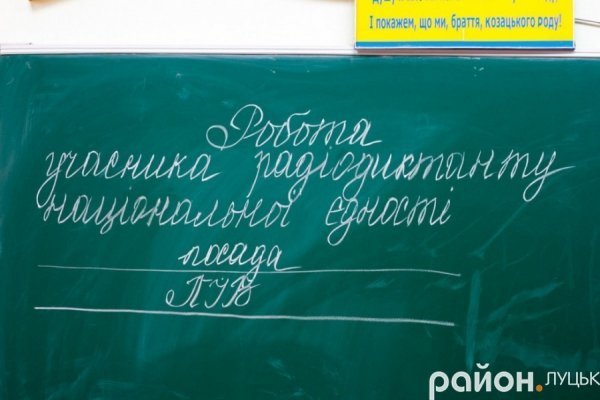 І покажем, що ми, браття, козацького роду!
Робота
учасника радіодиктанту
національної єдності
посада
ПІБ
район.ЛУЦЬК